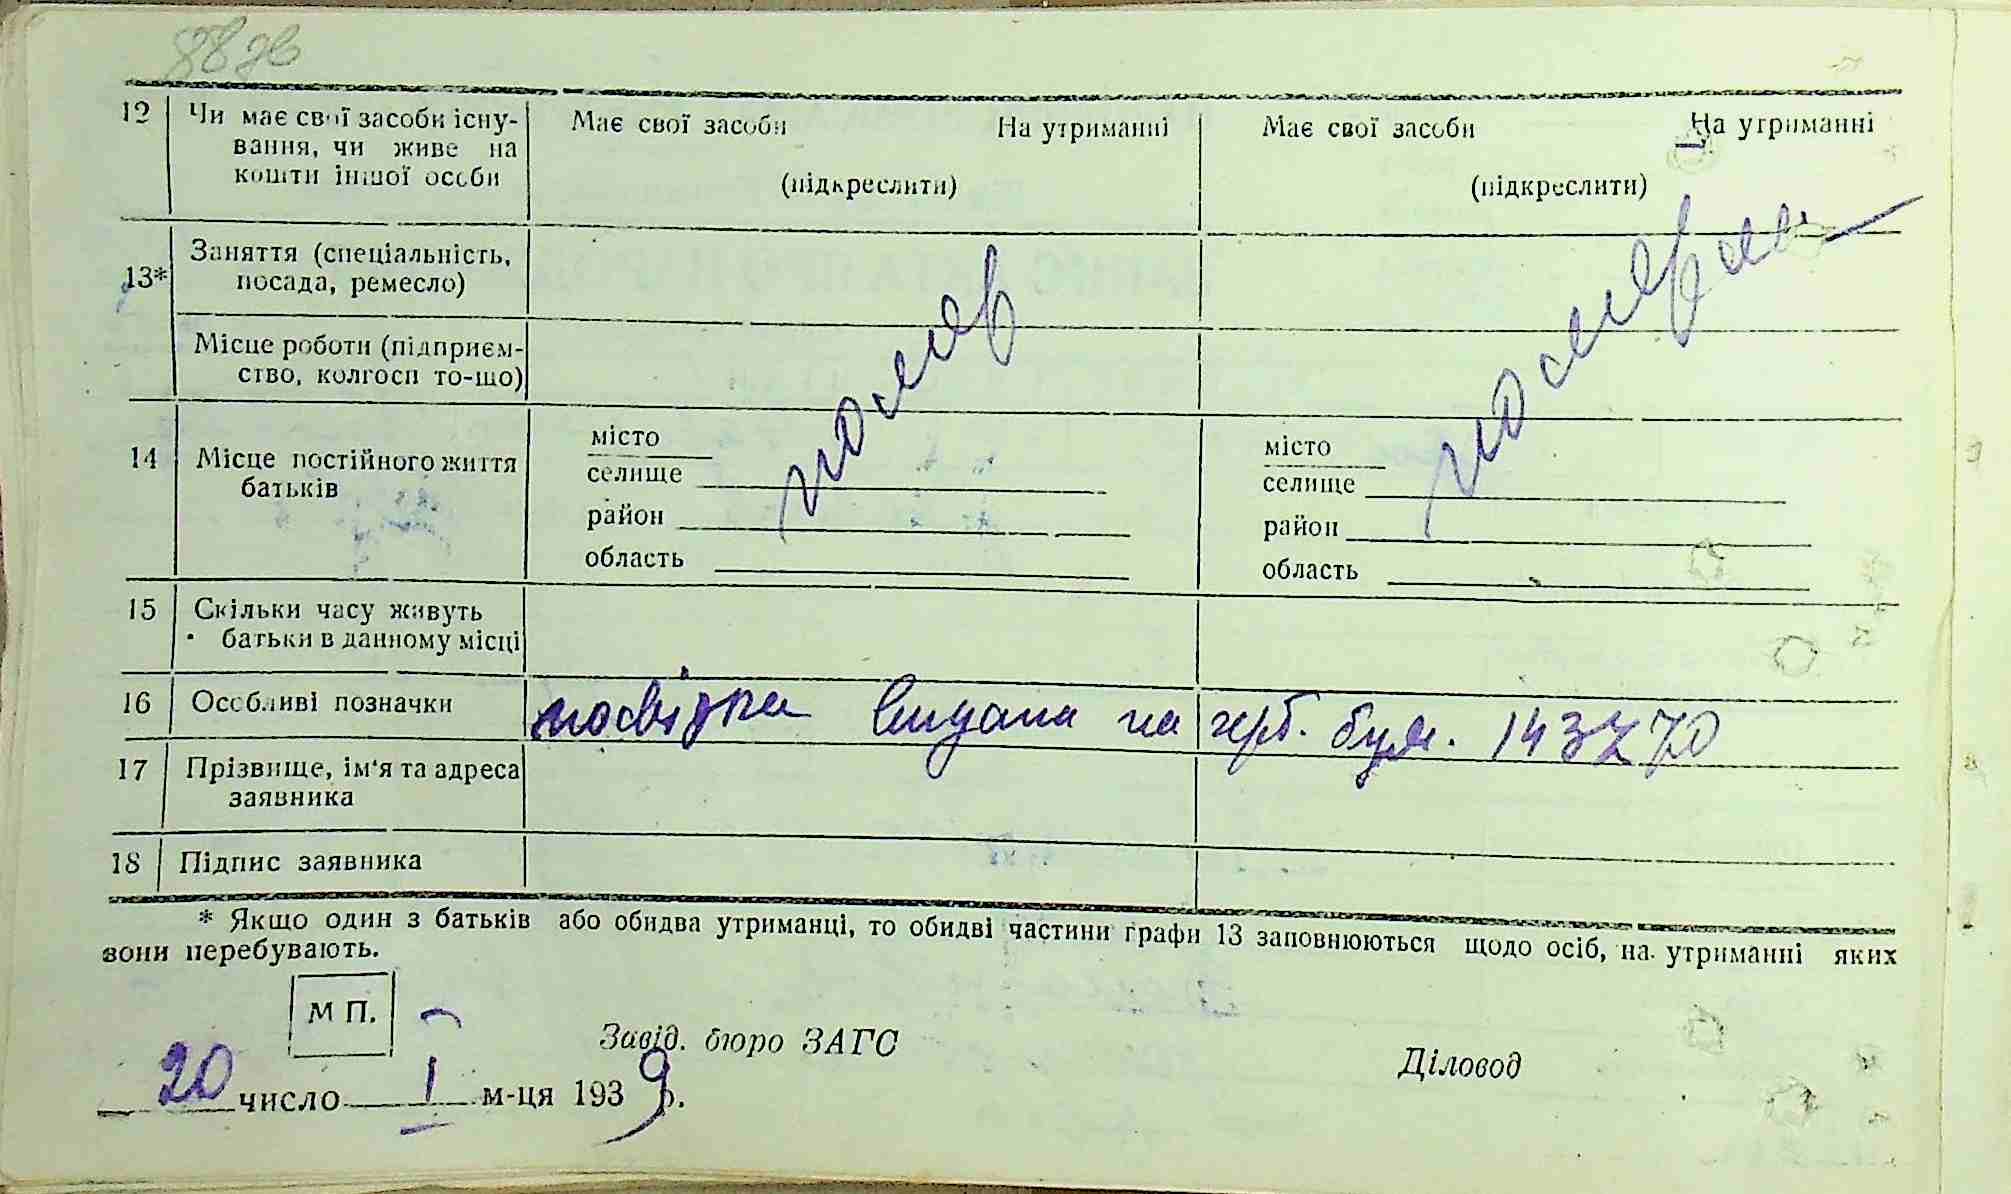 88 зв
12 Чи має свої засоби існу-
вання, чи живе на
кошти іншої особи
Має свої засоби На утриманні
(підкреслити)
Має свої засоби На утриманні
(підкреслити)
13* Заняття (спеціальність,
посада, ремесло)
Місце роботи (підприєм-
ство, колгосп то-що)
помер
померла
14 Місце постійного життя
батьків
місто
селище
район
область
місто
селище
район
область
15 Скільки часу живуть
батьки в данному місці
16 Особливі позначки
посвідка видана на герб. бум. 143270
17 Прізвище, ім'я та адреса
заявника
18 Підпис заявника
* Якщо один з батьків або обидва утриманці, то обидві частини графи 13 заповнюються щодо осіб, на утриманні яких
вони перебувають.
М П.
Завід. бюро ЗАГС
Діловод
20 число I м-ця 1939 р.